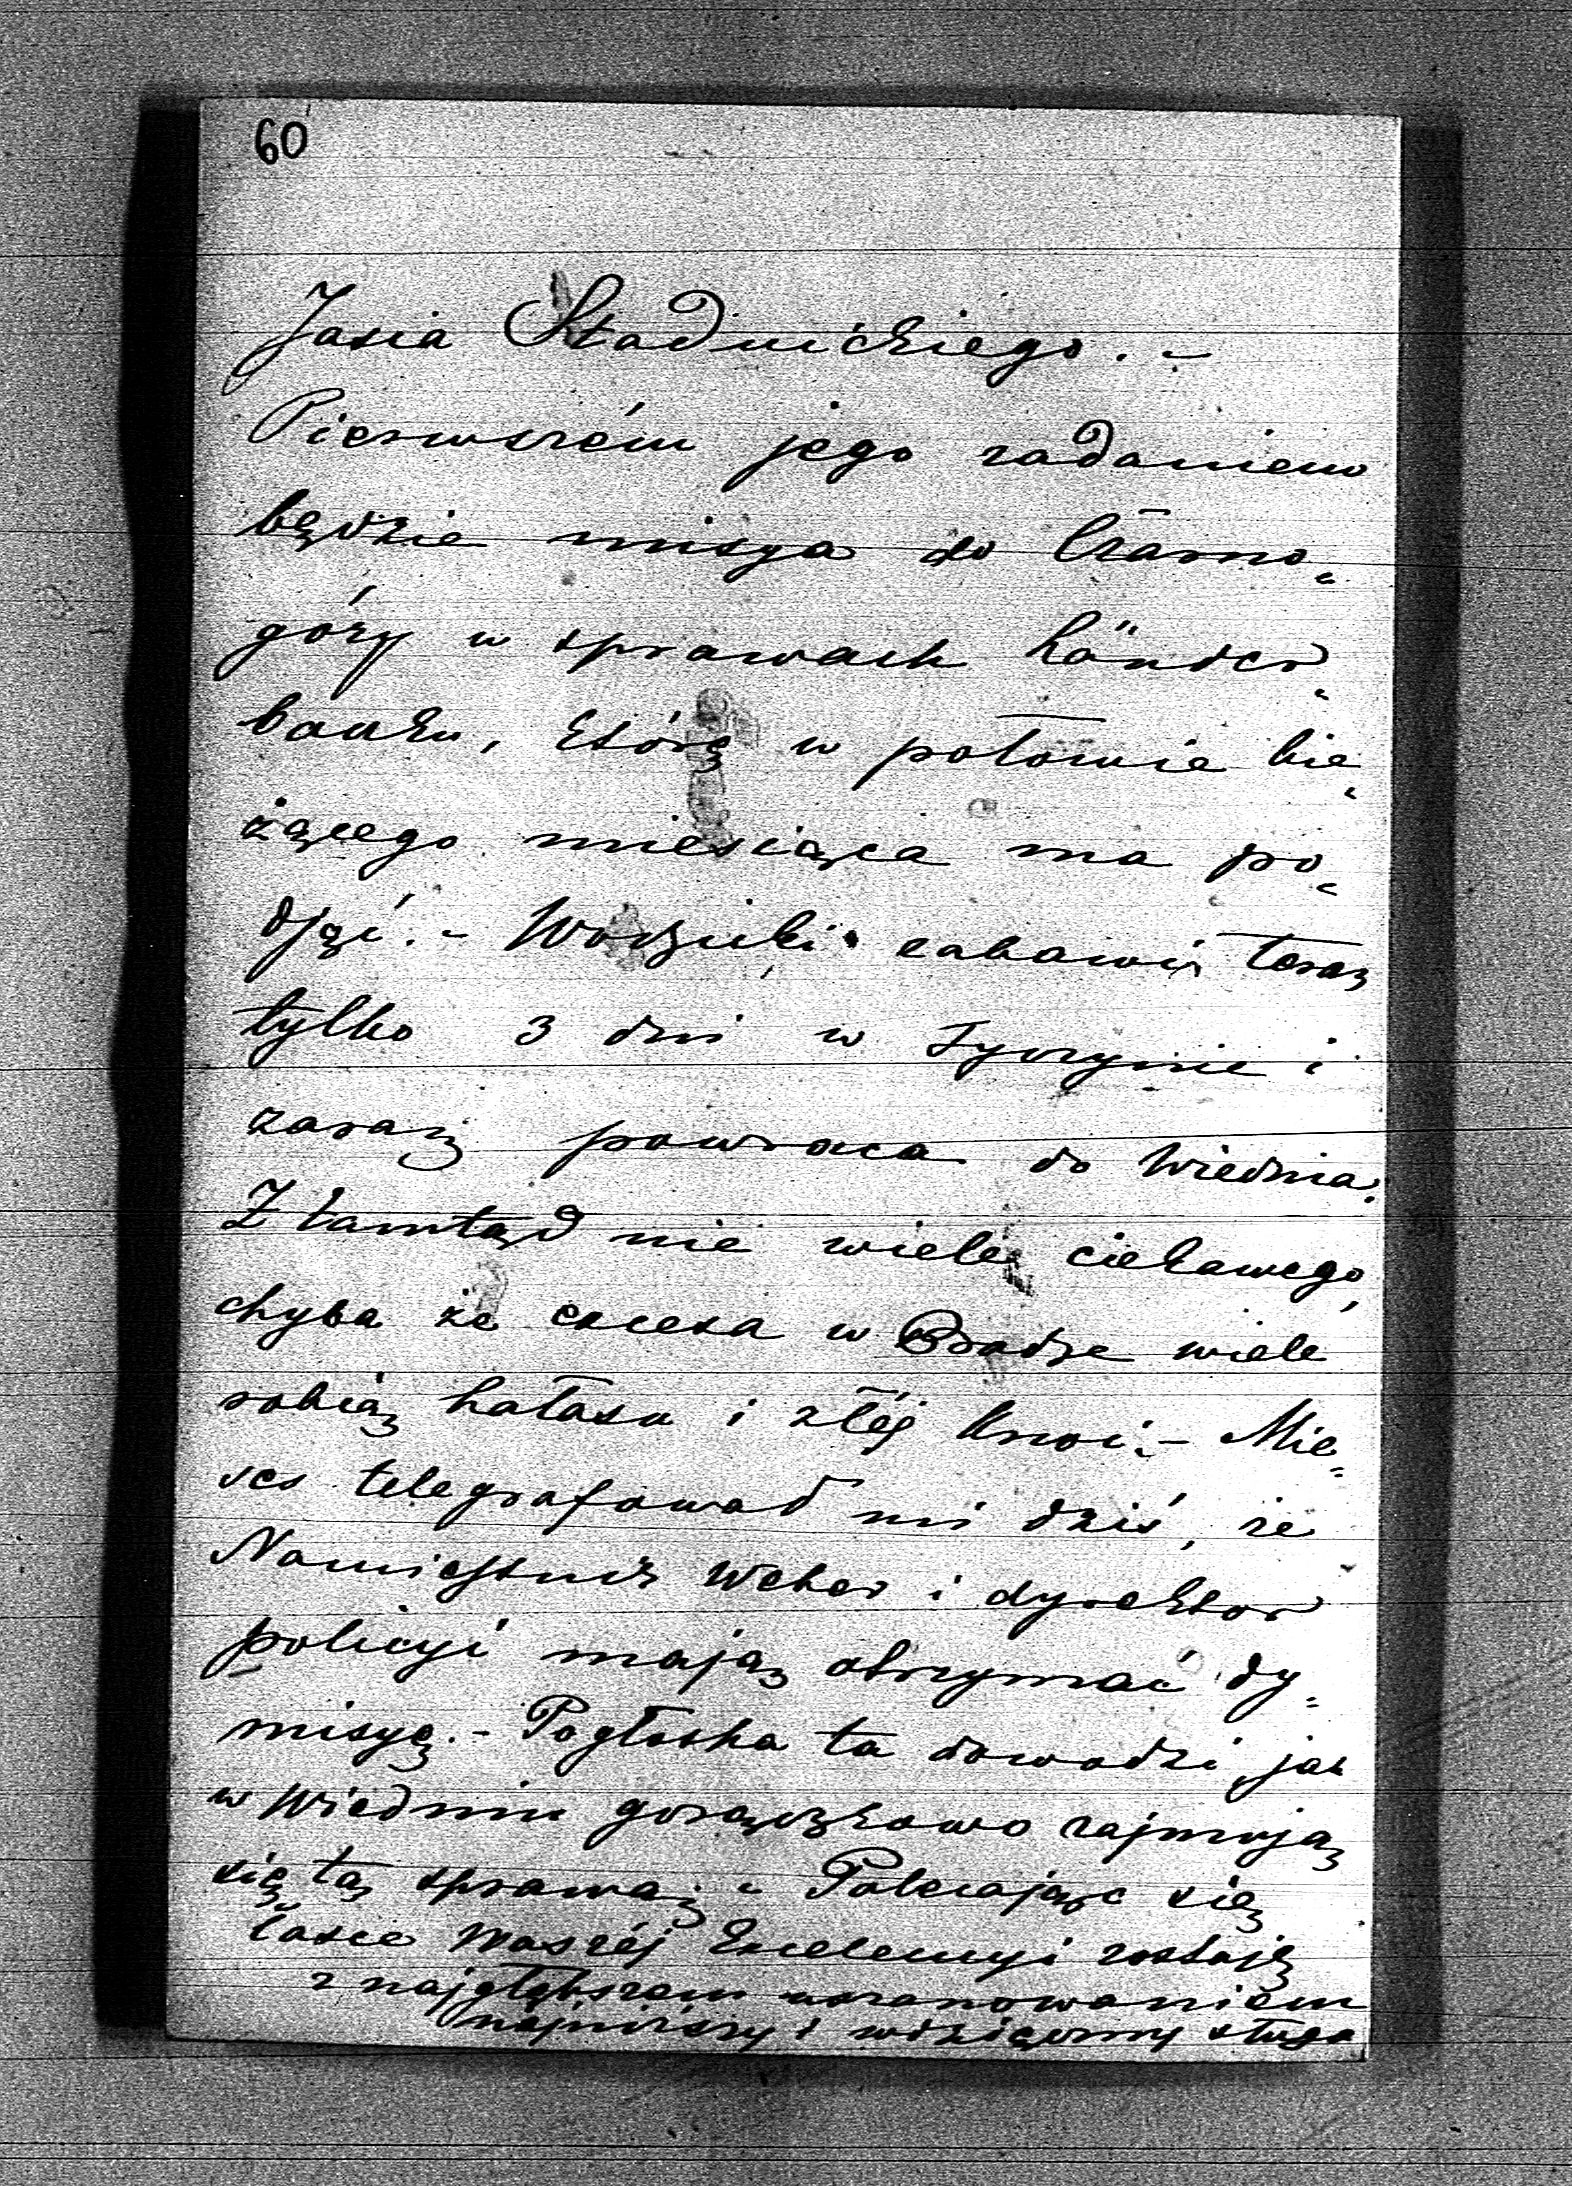 60
Jasia Stadnickiego. –
Pierwszém jego zadaniem
będzie misya do Czarno-
góry w sprawach Länder-
banku, którą w połowie bie-
żącego miesiąca ma po-
djąć. – Wodzicki zabawi teraz
tylko 3 dni w Tyczynie i
zaraz powraca do Wiednia.
Z tamtąd nie wiele ciekawego,
chyba że excesa w Pradze wiele
robią hałasu i złéj krwi. – Mie-
ses telegrafował mi dziś, że
Namiestnik Weber i dyrektor
policyi mają otrzymać dy-
misyę. – Pogłoska ta dowodzi, jak
w Wiedniu gorączkowo zajmują
się tą sprawą. – Polecając się
łasce Waszéj Excelencyi zostaję
z najgłębszem uszanowaniem
najniższy i wdzięczny sługa